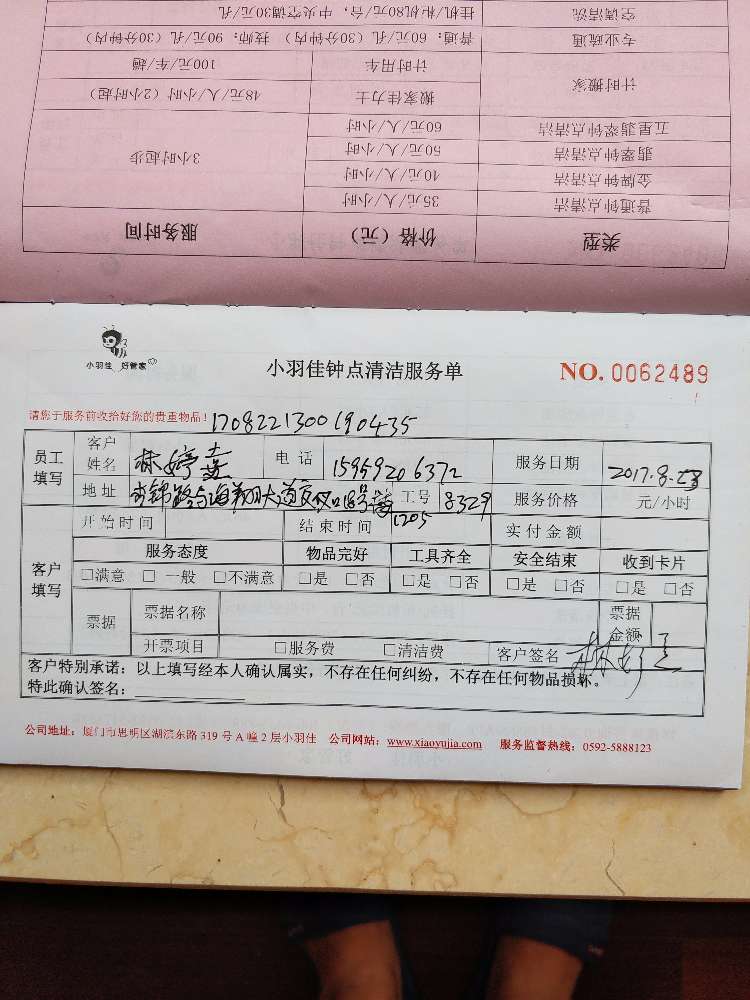 空调清洗 挂机/柜机80元/台，中央空调30元/孔
专业疏通 普通：60元/孔（30分钟内） 技师：90元/孔（30分钟内）
计时搬家 计时用车 100元/车/趟
搬家佳力士 48元/人/小时（2小时起）
五星翡翠钟点清洁 60元/人/小时
翡翠钟点清洁 50元/人/小时 3小时起步
金牌钟点清洁 40元/人/小时
普通钟点清洁 35元/人/小时
类型 价格（元） 服务时间
小羽佳 好管家
小羽佳钟点清洁服务单
NO. 0062489
请您于服务前收给好您的贵重物品！170822130019 0435
员工填写 客户姓名 林婷 电话 15959206372 服务日期 2017.8.
地址 锦路与海翔大道交叉口 工号 8329 服务价格 元/小时
客户填写 开始时间 结束时间 1205 实付金额
服务态度 物品完好 工具齐全 安全结束 收到卡片
□满意 □一般 □不满意 □是 □否 □是 □否 □是 □否 □是 □否
票据 票据名称 票据金额
开票项目 □服务费 □清洁费 客户签名 林婷
客户特别承诺：以上填写经本人确认属实，不存在任何纠纷，不存在任何物品损坏。
特此确认签名：
公司地址：厦门市思明区湖滨东路 319 号 A 幢 2 层小羽佳 公司网站：www.xiaoyujia.com 服务监督热线：0592-5888123